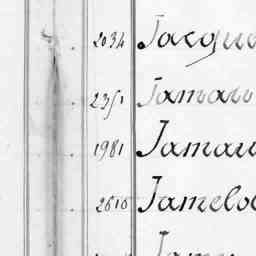 2034 Jacqu
2351 Jamau
1981 Jamau
2616 Jamelo